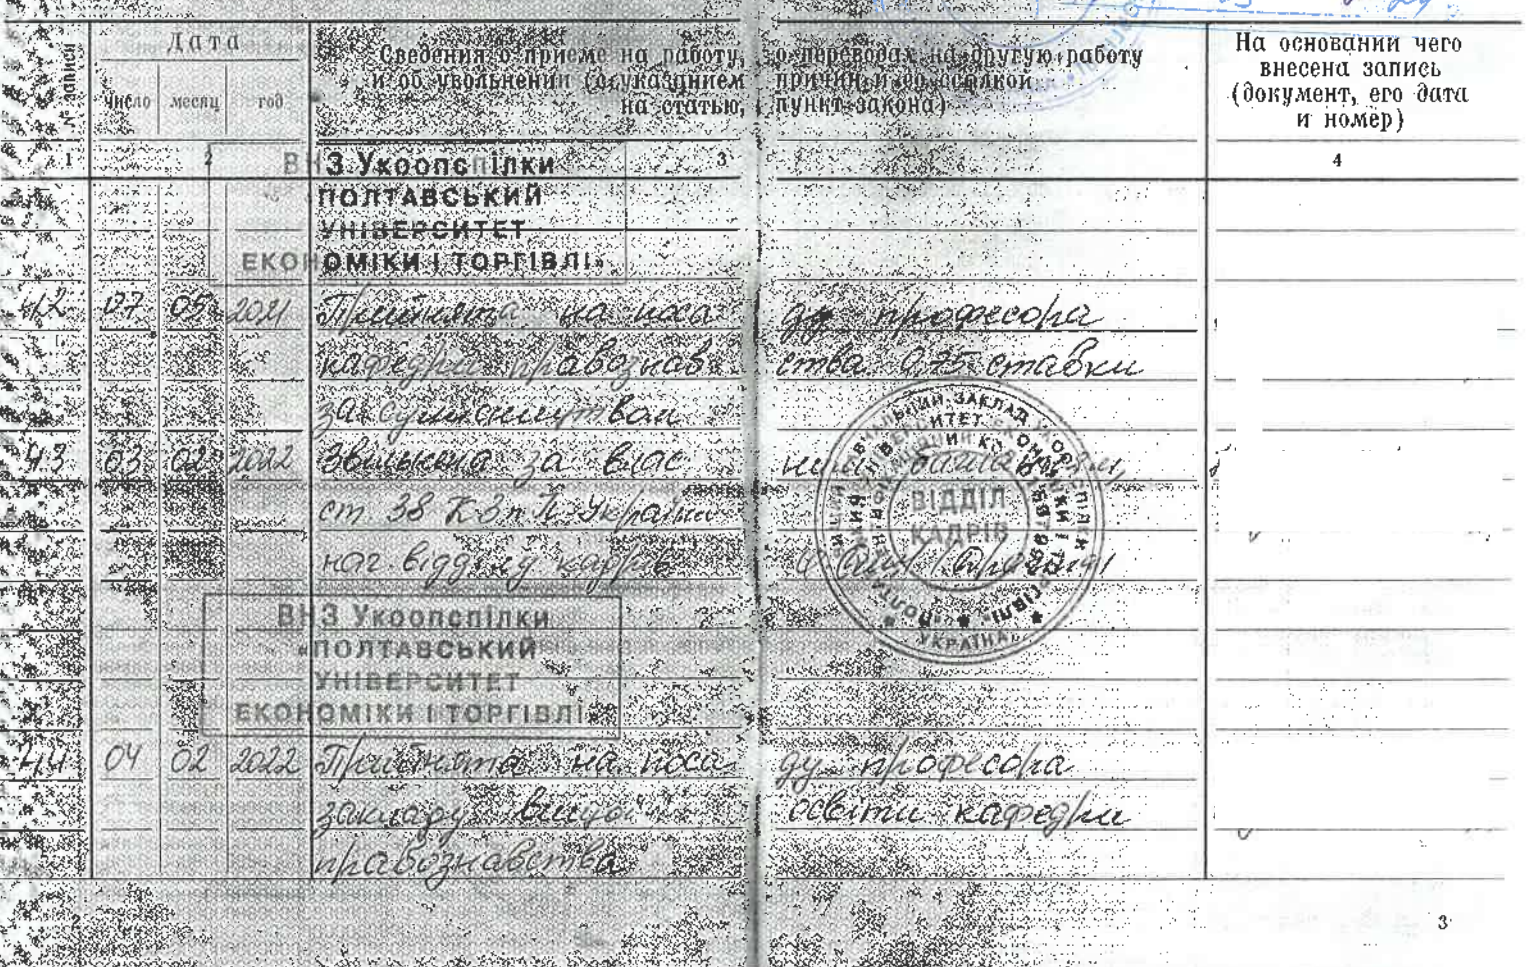 № записи
Дата
число месяц год
Сведения о приеме на работу, о переводах на другую работу
и об увольнении (с указанием причин и со ссылкой
на статью, пункт закона)
На основании чего
внесена запись
(документ, его дата
и номер)
1 2 3 4
ВНЗ Укоопспілки
ПОЛТАВСЬКИЙ
УНІВЕРСИТЕТ
ЕКОНОМІКИ І ТОРГІВЛІ»
42 07 05 2021 Прийнята на поса ду професора
кафедри правознав ства 0,75 ставки
за сумісництвом
43 03 02 2022 Звільнена за влас ним бажанням,
ст 38 КЗпП України
нач. відділу кадрів
ВІДДІЛ
КАДРІВ
УКРАЇНА
ВНЗ Укоопспілки
«ПОЛТАВСЬКИЙ
УНІВЕРСИТЕТ
ЕКОНОМІКИ І ТОРГІВЛІ»
44 04 02 2022 Прийнята на поса ду професора
закладу вищої освіти кафедри
правознавства
2
3